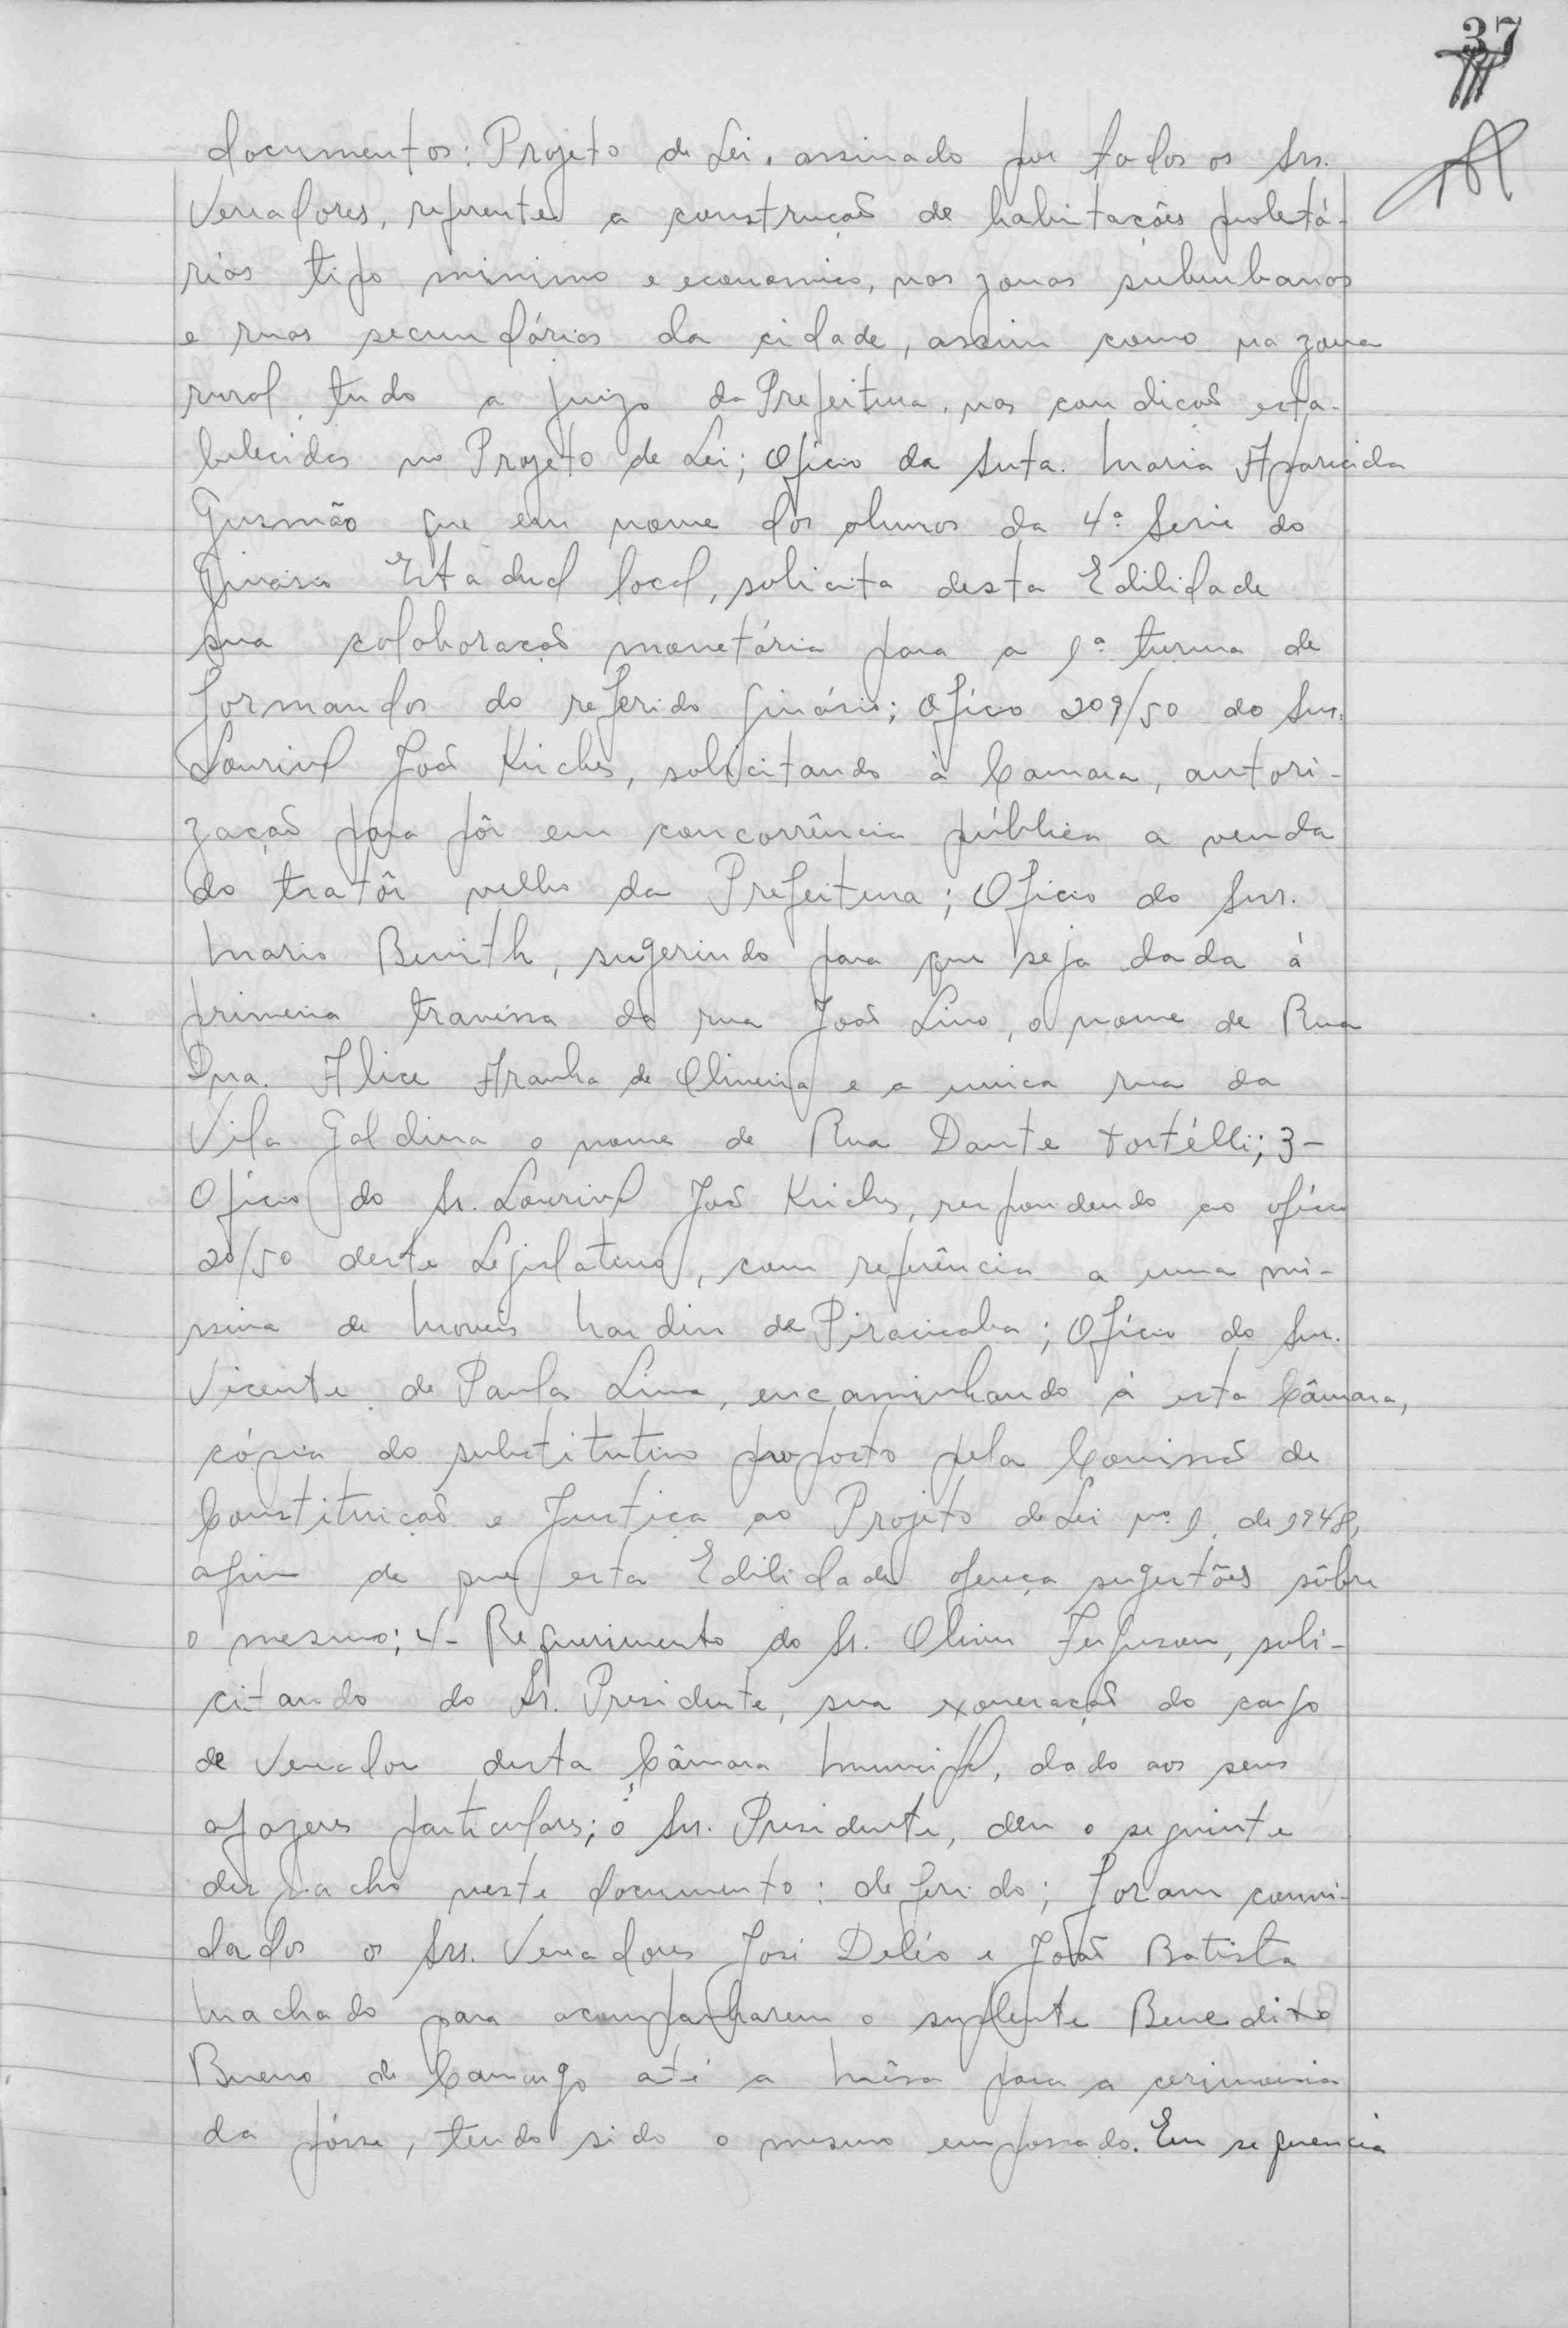 37
documentos: Projeto de Lei, assinado por todos os Srs.
Vereadores, referente a construção de habitações proletá-
rias tipo minimo e economico, nas zonas suburbanas
e ruas secundárias da cidade, assim como na zona
rural, tudo a juizo da Prefeitura, nas condicoẽs esta-
belecidas no Projeto de Lei; Oficio da Snta. Maria Aparecida
Gusmão que em nome dos alunos da 4ª Serie do
Ginasio Estadual local, solicita desta Edilidade
sua colaboração monetária para a 1ª turma de
formandos do referido ginásio; Ofício 209/50 do Snr.
Lourival João Kirches, solicitando à Camara, autori-
zação para pôr em concorrência pública a venda
do tratôr velho da Prefeitura; Oficio do Snr.
Mario Bewith, sugerindo para que seja dada à
primeira travessa da rua João Lino, o nome de Rua
Dna. Alice Aranha de Oliveira e a unica rua da
Vila Galdina o nome de Rua Dante Tortélli; 3-
Oficio do Sr. Lourival João Kriches, respondendo ao ofício
20/50 deste Legislativo, com referência a uma mi-
ssiva de Moveis Mardin de Piracicaba; Ofício do Snr.
Vicente de Paula Lima, encaminhando à esta Câmara,
cópia do substitutivo proposto pela Comissão de
Constituição e Justiça ao Projeto de Lei nº 1, de 1948,
afim de que esta Edilidade ofereça sugestões sôbre
o mesmo; 4- Requerimento do Sr. Olivier Ferguson, soli-
citando do Sr. Presidente, sua exoneração do cargo
de Vereador desta Câmara Municipal, dado aos seus
afazeres particulares; o Sr. Presidente, deu o seguinte
despacho neste documento: deferido; foram convi-
dados os Srs. Vereadores José Deléo e João Batista
Machado para acompanharem o suplente Benedito
Bueno de Camargo até a Mêsa para a cerimonia
da pósse, tendo sido o mesmo empossado. Em sequencia